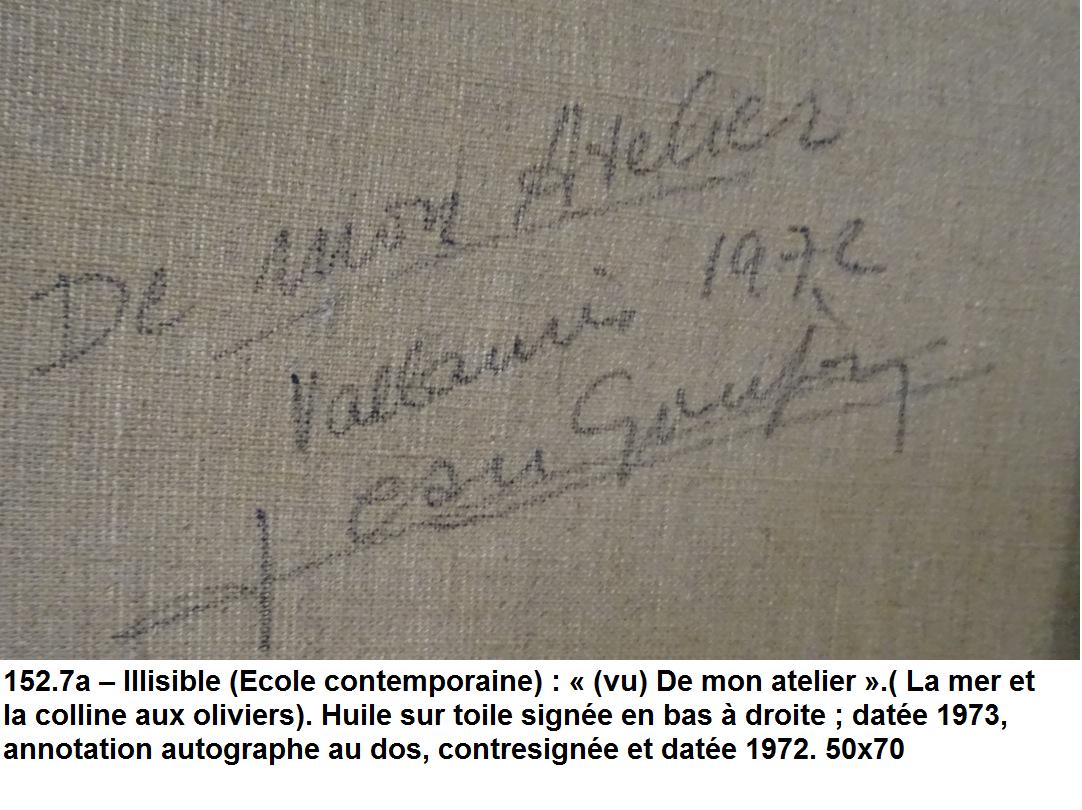 De mon Atelier
Vallauris 1972
Jean
152.7a – Illisible (Ecole contemporaine) : « (vu) De mon atelier ».( La mer et
la colline aux oliviers). Huile sur toile signée en bas à droite ; datée 1973,
annotation autographe au dos, contresignée et datée 1972. 50x70